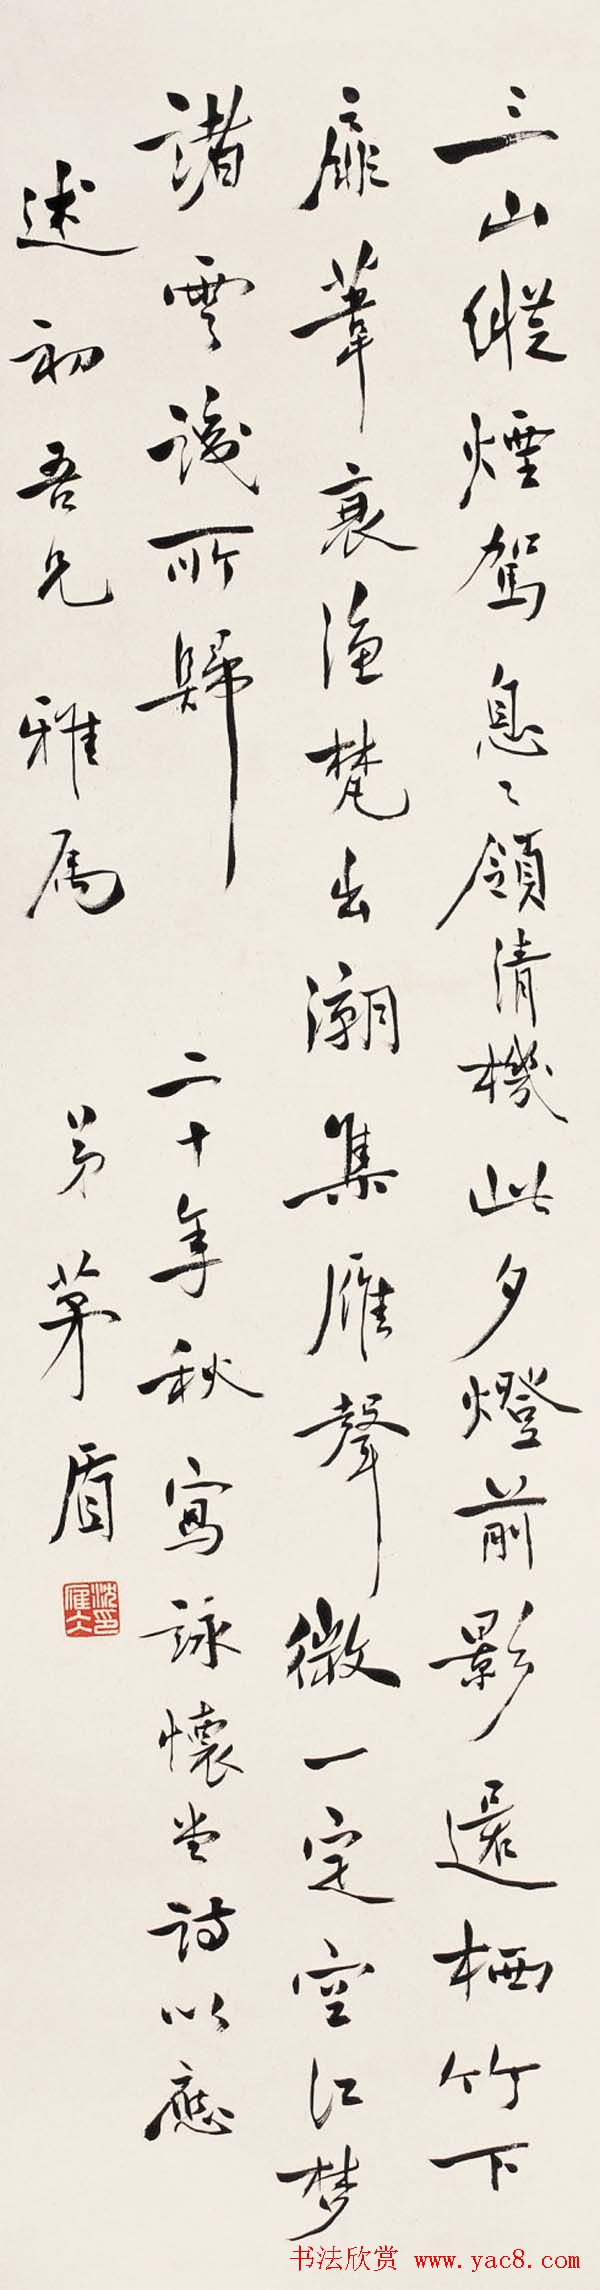 三山縱煙駕息〻領清機此夕燈前影還栖竹下
扉葦漁梵出潮集雁聲微一定空江夢
諸雲識所歸 二十年秋寫詠懷堂詩以應
述初吾兄 雅属 弟茅盾
沈印雁冰
书法欣赏 www.yac8.com